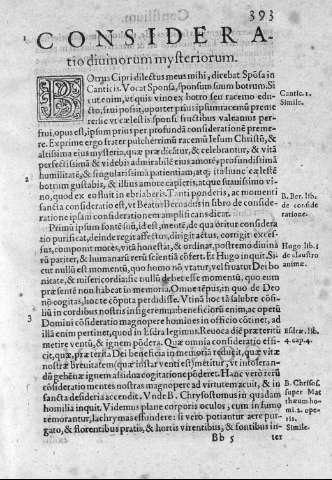 393
CONSIDERA-
tio diuinorum mysteriorum.
BOtrus Cipri dilectus meus mihi, dicebat Spōsa in
Canticis. Vocat Sponsa, sponsum suum botrum. Si
cut enim, vt quis vino ex botro seu racemo edu-
cto, frui possit, oportet prius ipsum racemū preme
re: sic vt cælestis sponsi fructibus valeamus per-
frui, opus est, ipsum prius per profundā considerationē preme-
re. Exprime ergo frater pulcherrimū racemū Iesum Christū, &
altissima eius mysteria, quæ prædicātur, & celebrantur, & vitā
perfectissimā & videbis admirabilē eius amorē, profundissimā
humilitatē, & singularissimā patientiam, atq; ita hunc cælestē
botrum gustabis, & illius amore captus, atque suauissimo vi-
no, quod ex eo fluit inebriaberis. Tanti ponderis, ac momenti
sancta consideratio est, vt Beatus Bernardus in libro de conside
ratione ipsam considerationem amplificans dicat.
Primū ipsum fontē suū, id est, mentē, de qua oritur considera
tio purificat, deinde regit affectus, dirigit actus, corrigit exces-
sus, componit mores, vitā honestat, & ordinat, postremo diuina
rū pariter, & humanarū rerū scientiā cōfert. Et Hugo inquit. Si-
cut nullū est momentū, quo homo nō vtatur, vel fruatur Dei bo
nitate, & misericordia: sic nullū debet esse momentū, quo eum
præsentē non habeat in memoria. Omne tēpus, in quo de Deo
nō cogitas, hoc te cōputa perdidisse. Vtinā hoc tā salubre cōsi-
liū in cordibus nostris insigeremus: beneficiorū enim, ac operū
Domini cōsideratio magnopere homines in officio cōtinet, ad
illā enim pertinet, quod in Esdra legimus. Reuoca diē præteritū
metire ventū, & ignem pōdera. Quæ omnia consideratio effi-
cit, quæ, præterita Dei beneficia in memoriā reducit, quæ vitæ
nostræ breuitatem (quæ instar venti est) metitur, vt intoleran-
dū gehēnæ ignem assidua cogitatione pōderet. Hanc verò rerū
cōsideratio mentes nostras magnopere ad virtutem acuit, & in
sancta desideria accendit. Vnde B. Chrysostomus in quadam
homilia inquit. Videmus plane corporis oculos, cum in fumo
remorantur, lachrymas effundere: si verò potiantur aere pur-
gato, & florentibus pratis, & hortis virentibus, & fontibus in-
Bb 5 ter
1
2
3
Cantic. 1.
Simile.
B. Ber. lib.
de conside
ratione.
Hugo lib. 1
de claustro
animæ.
Esdræ. lib.
4. cap. 4.
B. Chrisos.
super Mat
thæum ho
mi. 2. ope-
ris.
Simile.